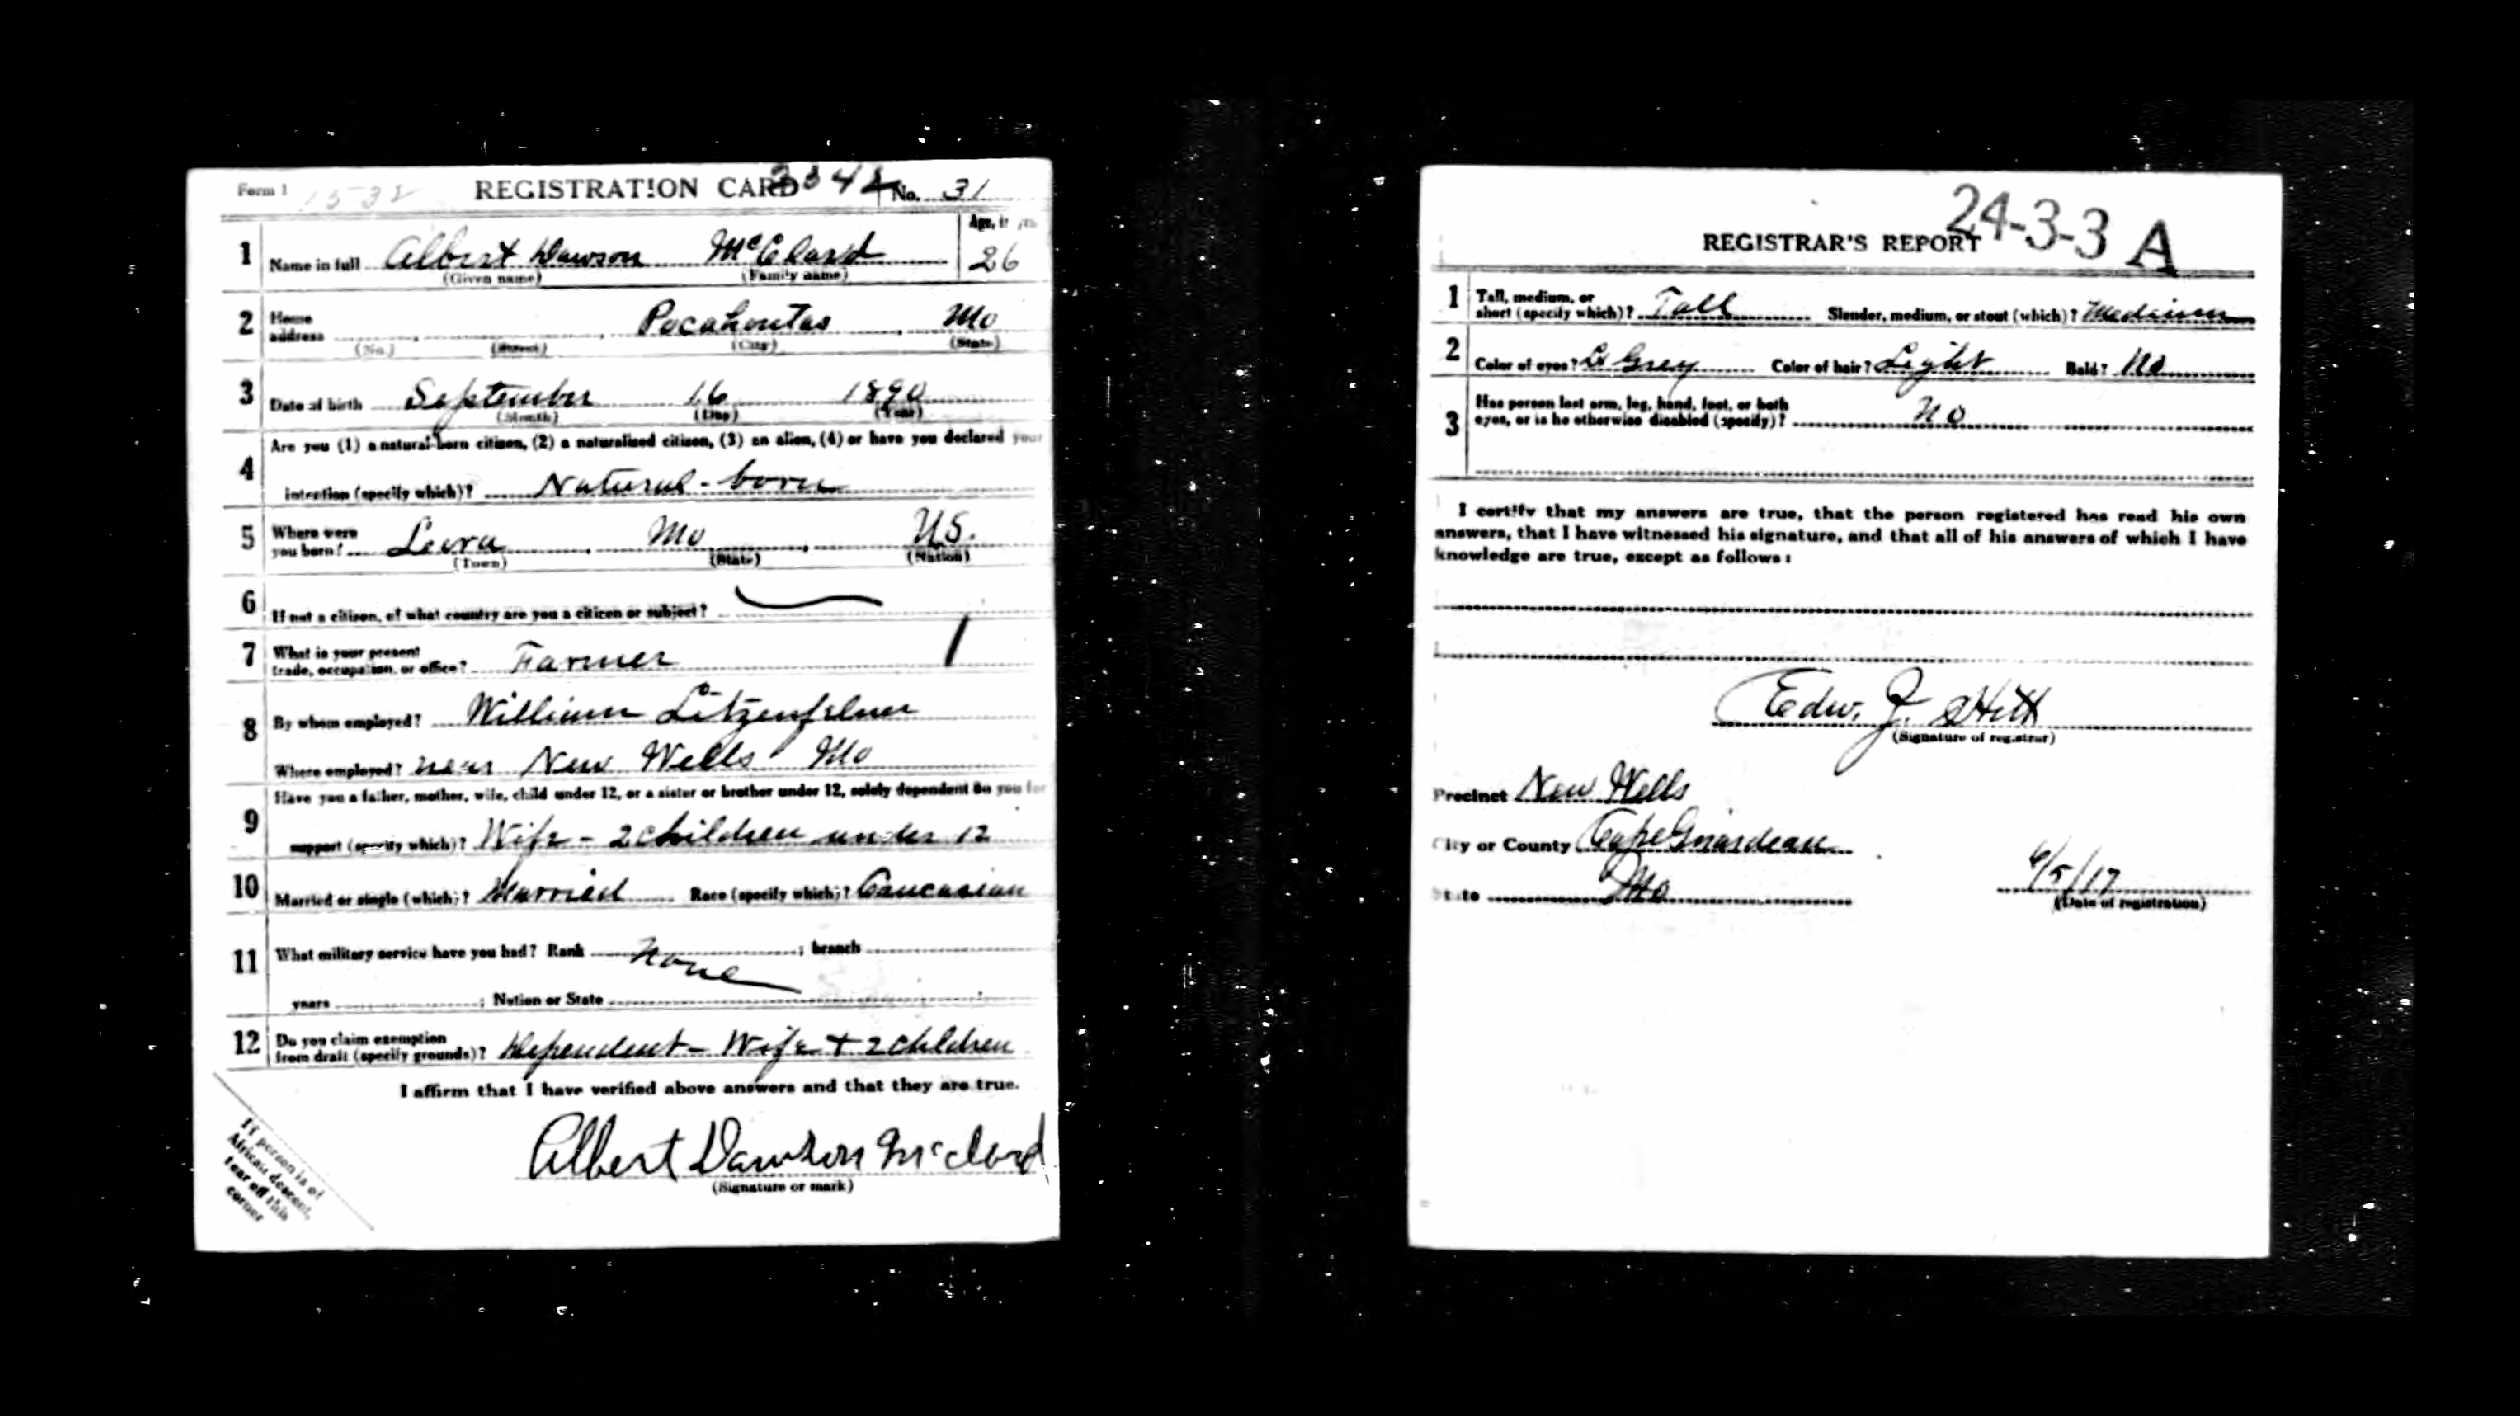 Form 1 1532 REGISTRATION CARD No. 31
Age, in yrs.
1 Name in full Albert Dawson McClard 26
(Given name) (Family name)
2 Home address Pocahontas Mo
(No.) (Street) (City) (State)
3 Date of birth September 16 1890
(Month) (Day) (Year)
4 Are you (1) a natural-born citizen, (2) a naturalized citizen, (3) an alien, (4) or have you declared your
intention (specify which)? Natural-born
5 Where were you born? Mo U.S.
(Town) (State) (Nation)
6 If not a citizen, of what country are you a citizen or subject?
7 What is your present
trade, occupation, or office? Farmer
8 By whom employed? William
Where employed? near New Wells Mo
9 Have you a father, mother, wife, child under 12, or a sister or brother under 12, solely dependent on you for
support (specify which)? Wife - 2 children under 12
10 Married or single (which)? Married Race (specify which)? Caucasian
11 What military service have you had? Rank None ; branch
years ; Nation or State
12 Do you claim exemption
from draft (specify grounds)? Dependent - Wife + 2 children
I affirm that I have verified above answers and that they are true.
Albert Dawson McClard
(Signature or mark)
If person is of
African descent,
tear off this
corner
24-3-3 A
REGISTRAR'S REPORT
1 Tall, medium, or
short (specify which)? Tall Slender, medium, or stout (which)? Medium
2 Color of eyes? Lt Grey Color of hair? Light Bald? No
3 Has person lost arm, leg, hand, foot, or both
eyes, or is he otherwise disabled (specify)? No
I certify that my answers are true, that the person registered has read his own
answers, that I have witnessed his signature, and that all of his answers of which I have
knowledge are true, except as follows:
Edw. J.
(Signature of registrar)
Precinct New Wells
City or County Cape Girardeau
State Mo 6/5/17
(Date of registration)